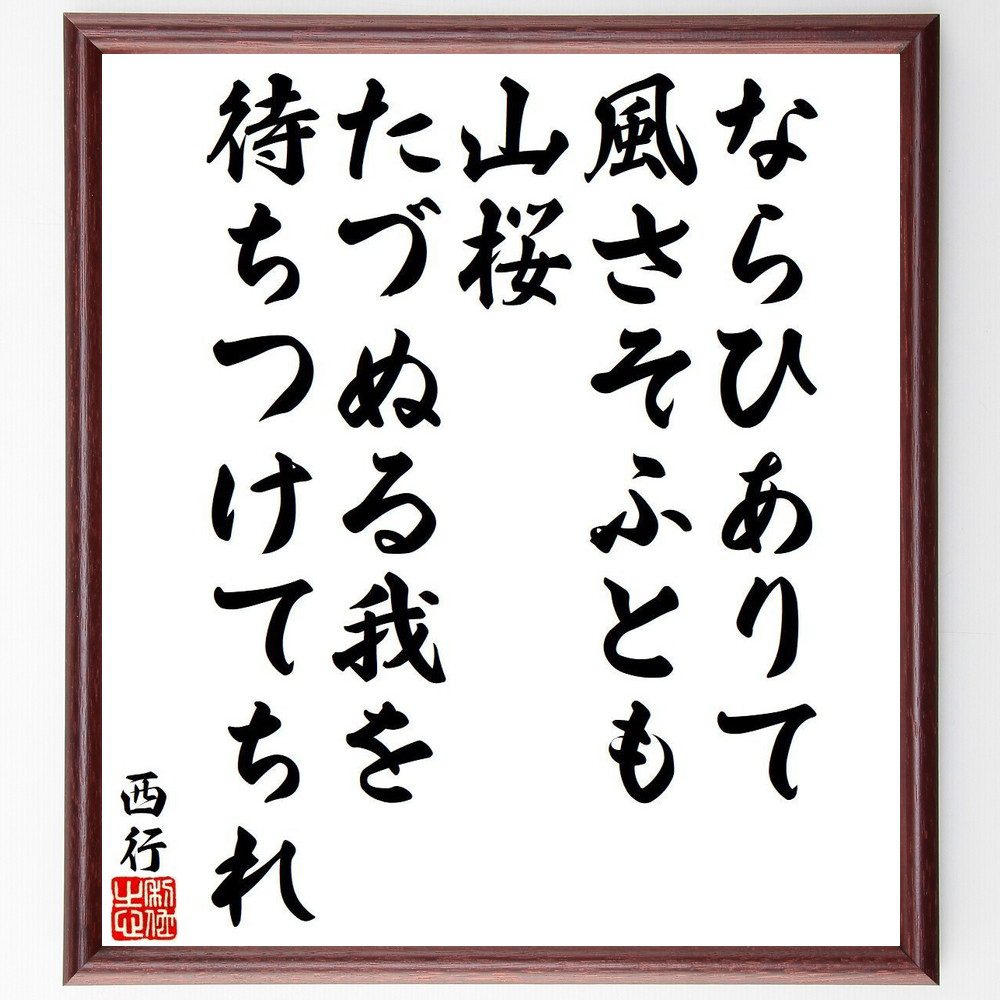 ならひありて
風さそふとも
山桜
たづぬる我を
待ちつけてちれ
西行